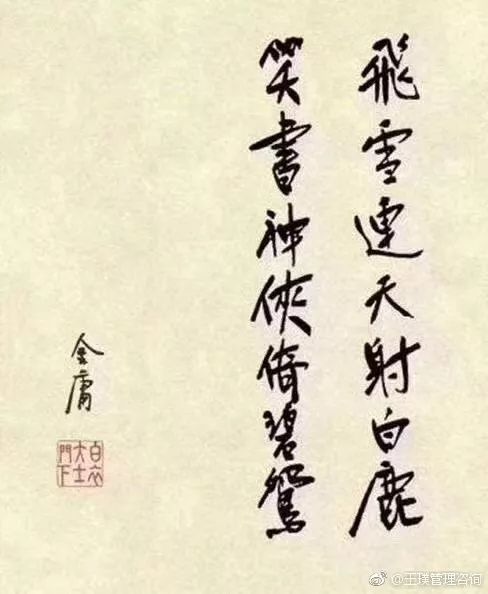 飛雪連天射白鹿
笑書神俠倚碧鴛
金庸
白衣
大士
門下
@王璞管理咨询